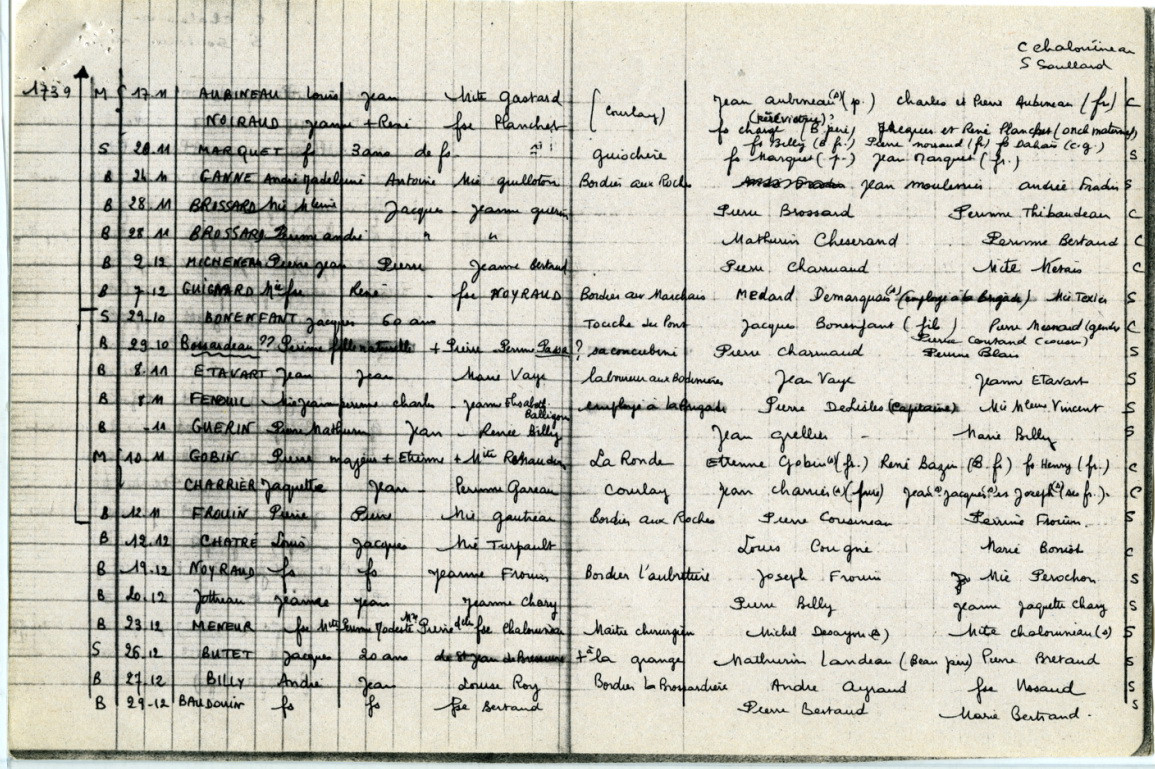 C Chalouineau
S Soullard
1739 M 17.11 AUBINEAU Louis Jean Mite Gastard (Courlay) Jean aubineau (p.) Charles et Pierre Aubineau (fr) C
NOIRAUD Jeanne + René fse Planchet fs charge (B. père) Jacques et René Planchet (oncl maternels)
fs Billy (B fr) Pierre noiraud (fr)
S MARQUET fs 3 ans de fs guiochère fs Marquet (p.) Jean Marquet (fr.) S
B 24 11 GANNE André Madeleine Antoine Mie guilloton Bordier aux Roches Jean moulennis andrée Fradin S
B 28.11 BROSSARD Mie Jacques - Jeanne guerin Pierre Brossard Perinne Thibaudeau C
B 28 11 BROSSARD Perinne andré " " Mathurin Cheserand Perinne Bertaud C
B 9.12 MICHENEAU Pierre Jean Pierre Jeanne Bertaud Pierre Charruaud Mite C
B 7.12 GUIGNARD Mie fse René - fse NOYRAUD Bordier au Marchais Medard Demarquais (a) (employé à la Brigade) Mie Texier S
S 29.10 BONENFANT Jacques 60 ans Touche du Pont Jacques Bonenfant (fils) Pierre Mesnard (gendre) C
Pierre Cousand (cousin)
B 29.10 Bossardeau ?? Perinne fille naturelle + Pierre - Perinne Passe ? sa concubine Pierre Charruaud Perinne Blais S
B 8.11 ETAVART Jean Jean Marie Vaye laboureur aux Bodinières Jean Vaye Jeanne Etavart S
B 8 11 FENOUIL Mie Jeanne perinne Charles - Jeanne Elisabeth Balligon employé à la Brigade Pierre Delisles (Capitaine) Mie Vincent S
B - 11 GUERIN Pierre Mathurin Jean - Renée Billy Jean grellier - Marie Billy S
M 10.11 GOBIN Pierre majeur + Etienne + Mite La Ronde Etienne Gobin (a) (fr.) René Bazin (B. fr) fs Henry (fr.) C
CHARRIER Jaquette Jean - Perinne Gareau Courlay Jean charrier (a) (frere) Jean (a) Jacques (a) et Joseph (a) (ses fr.). C
B 12.11 FROUIN Pierre Pierre Mie gautreau Bordier aux Roches Pierre Cousineau Perrine Frouin. S
B 12.12 CHATRÉ Louis Jacques Mie Turpault Louis Cougné Marie C
B 19.12 NOYRAUD fs fs Jeanne Frouin Bordier l'aubretière Joseph Frouin Mie Perochon S
B 20.12 Jottreau Jeanne Jean Jeanne Chary Pierre Billy Jeanne Jaquette Chary S
B 23.12 MENEUR fse Mite Perinne Modeste Mre Pierre dlle fse Chalouineau Maître chirurgien Michel (a) Mite chalouineau (a) S
S 26.12 BUTET Jacques 20 ans + à la grange Mathurin Landeau (Beau père) Pierre Bretaud S
B 27.12 BILLY André Jean Louise Roy Bordier La Brossardière Andre Ayraud fse Nosaud S
B 29-12 BAUDOUIN fs fs fse Bertaud Pierre Bertaud Marie Bertrand. S